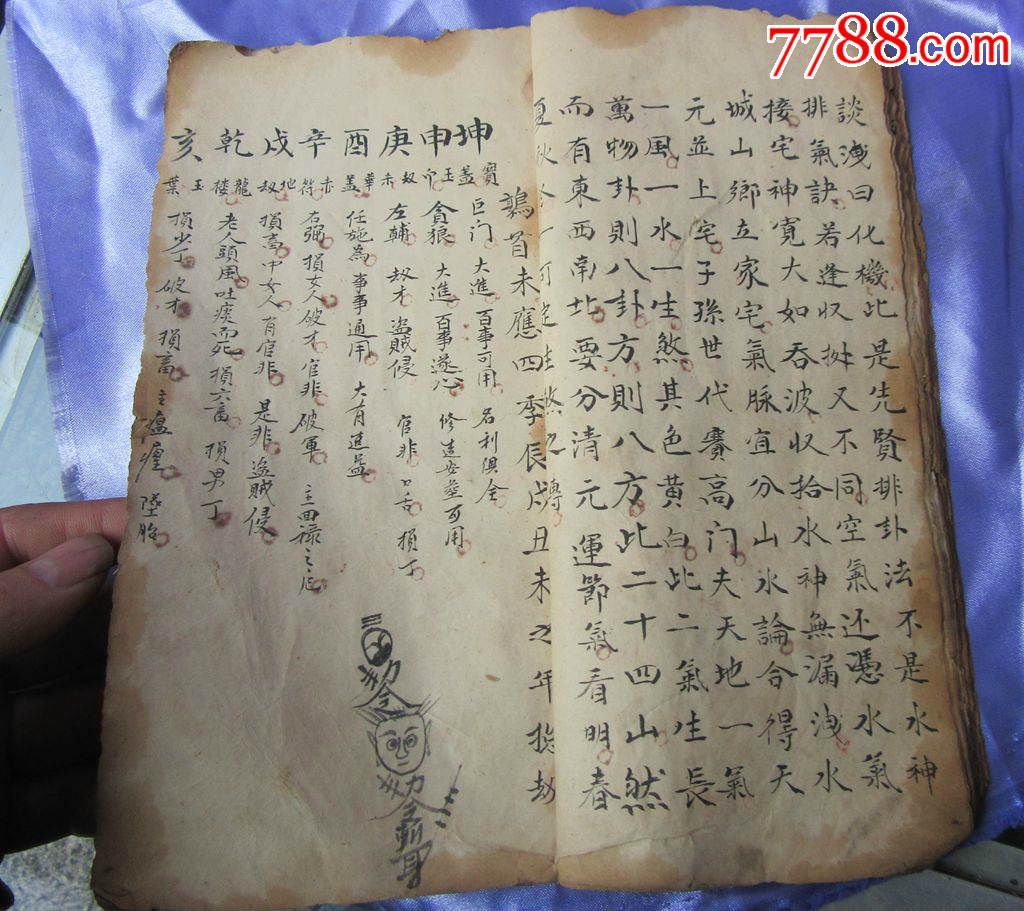 7788.com
談洩曰化機此是先賢排卦法不是水神
排氣訣若逢收㧱又不同空氣还憑水氣
接宅神寬大如吞波收拾水神無漏洩水
城山鄉立家宅氣脉宜分山水論合得天
元並上宅子孫世代賽高门夫天地一氣
一風一水一生煞其色黄白此二氣生長
萬物卦則八卦方則八方此二十四山然
而有東西南北要分清元運節氣看明春
夏秋冬一可定生煞之
鶉首未應四季辰戌丑未之年
坤 寶盖 巨门 大進 百事可用 名利俱全
申 玉 貪狼 大進 百事遂心 修造安葬可用
庚 劫赤 左輔 劫才 盜賊侵 官非口舌 損丁
酉 華盖 任施為 事事通用 大有進益
辛 赤符 右弼 損女人破才官非 破軍 主回禄之厄
戌 地劫 損畜中女人有官非 是非盜賊侵
乾 龍楼 老人頭風吐痰而死 損六畜 損男丁
亥 玉葉 損少丁 破才 損畜 主瘟㾮 墜胎